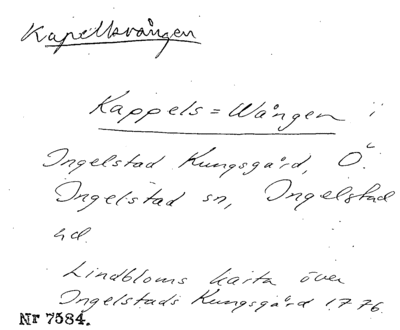 Kapellsvången
Kappels=Wången i
Ingelstad Kungsgård, Ö.
Ingelstad sn, Ingelstad
hd.
Lindbloms karta över
Ingelstads Kungsgård 1776.
Nr 7584.